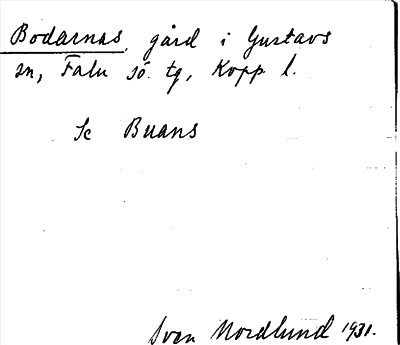 Bodarnas, gård i Gustavs
sn, Falu sö. tg, Kopp. l.
Se Buans
Sven Nordlund 1931.